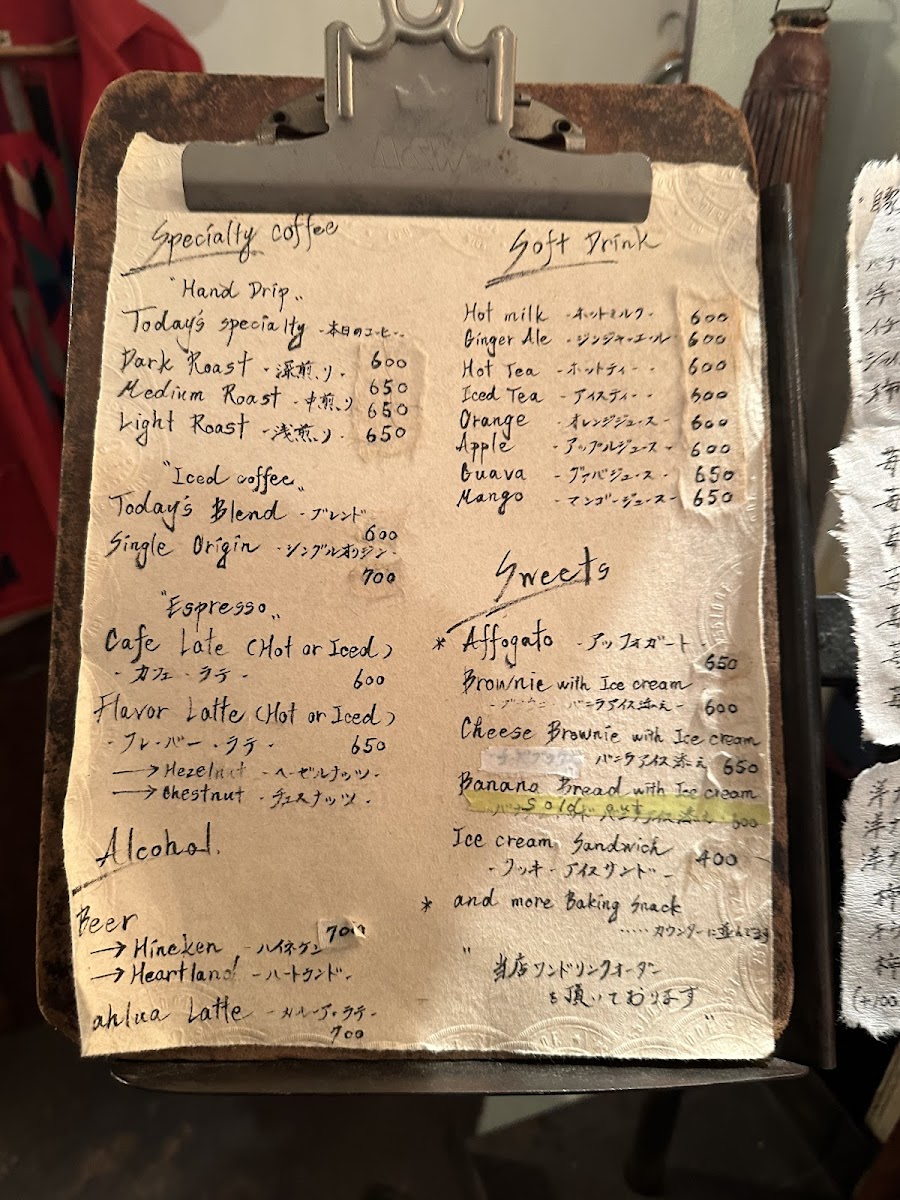 Specialty coffee
"Hand Drip"
Today's specialty - 本日のコーヒー -
600
Dark Roast - 深煎り -
650
Medium Roast - 中煎り
650
Light Roast - 浅煎り -
650
"Iced coffee"
Today's Blend - ブレンド
600
Single Origin - シングルオリジン -
700
"Espresso"
Cafe Late (Hot or Iced)
- カフェ・ラテ - 600
Flavor Latte (Hot or Iced)
- フレーバー・ラテ - 650
→ Hezelnut - ヘーゼルナッツ -
→ Chestnut - チェスナッツ -
Alcohol
Beer 700
→ Hineken - ハイネケン
→ Heartland - ハートランド -
ahlua Latte - カルーア・ラテ -
700
Soft Drink
Hot milk - ホットミルク - 600
Ginger Ale - ジンジャーエール 600
Hot Tea - ホットティー - 600
Iced Tea - アイスティー - 600
Orange - オレンジジュース - 600
Apple - アップルジュース - 600
Guava - グァバジュース - 650
Mango - マンゴージュース - 650
Sweets
* Affogato - アッフォガート -
650
Brownie with Ice cream
バニラアイス添え - 600
Cheese Brownie with Ice cream
バニラアイス添え 650
Banana Bread with Ice cream
Sold out
600
Ice cream Sandwich 400
- クッキーアイスサンド -
* and more Baking Snack
..... カウンターに並んでます
"当店ワンドリンクオーダー
を頂いております"